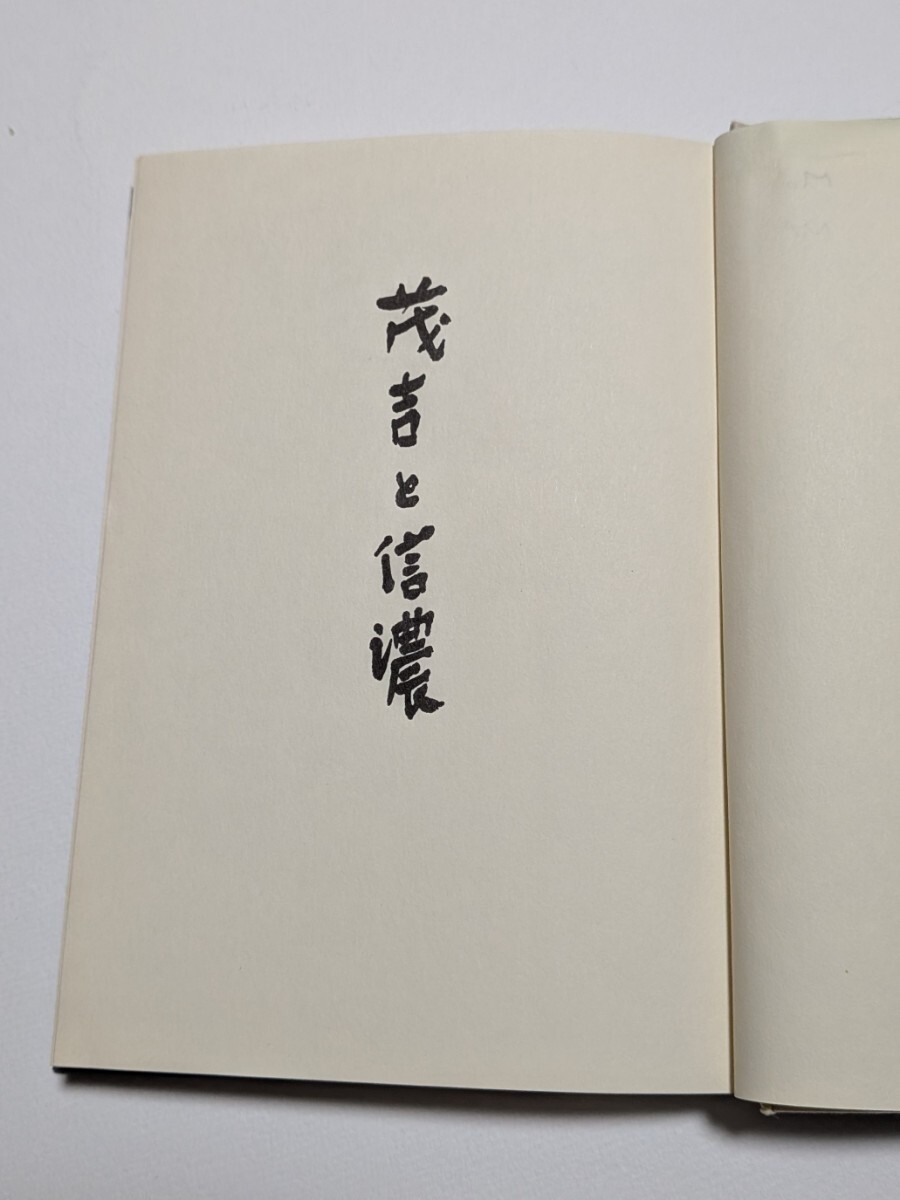 茂吉と信濃